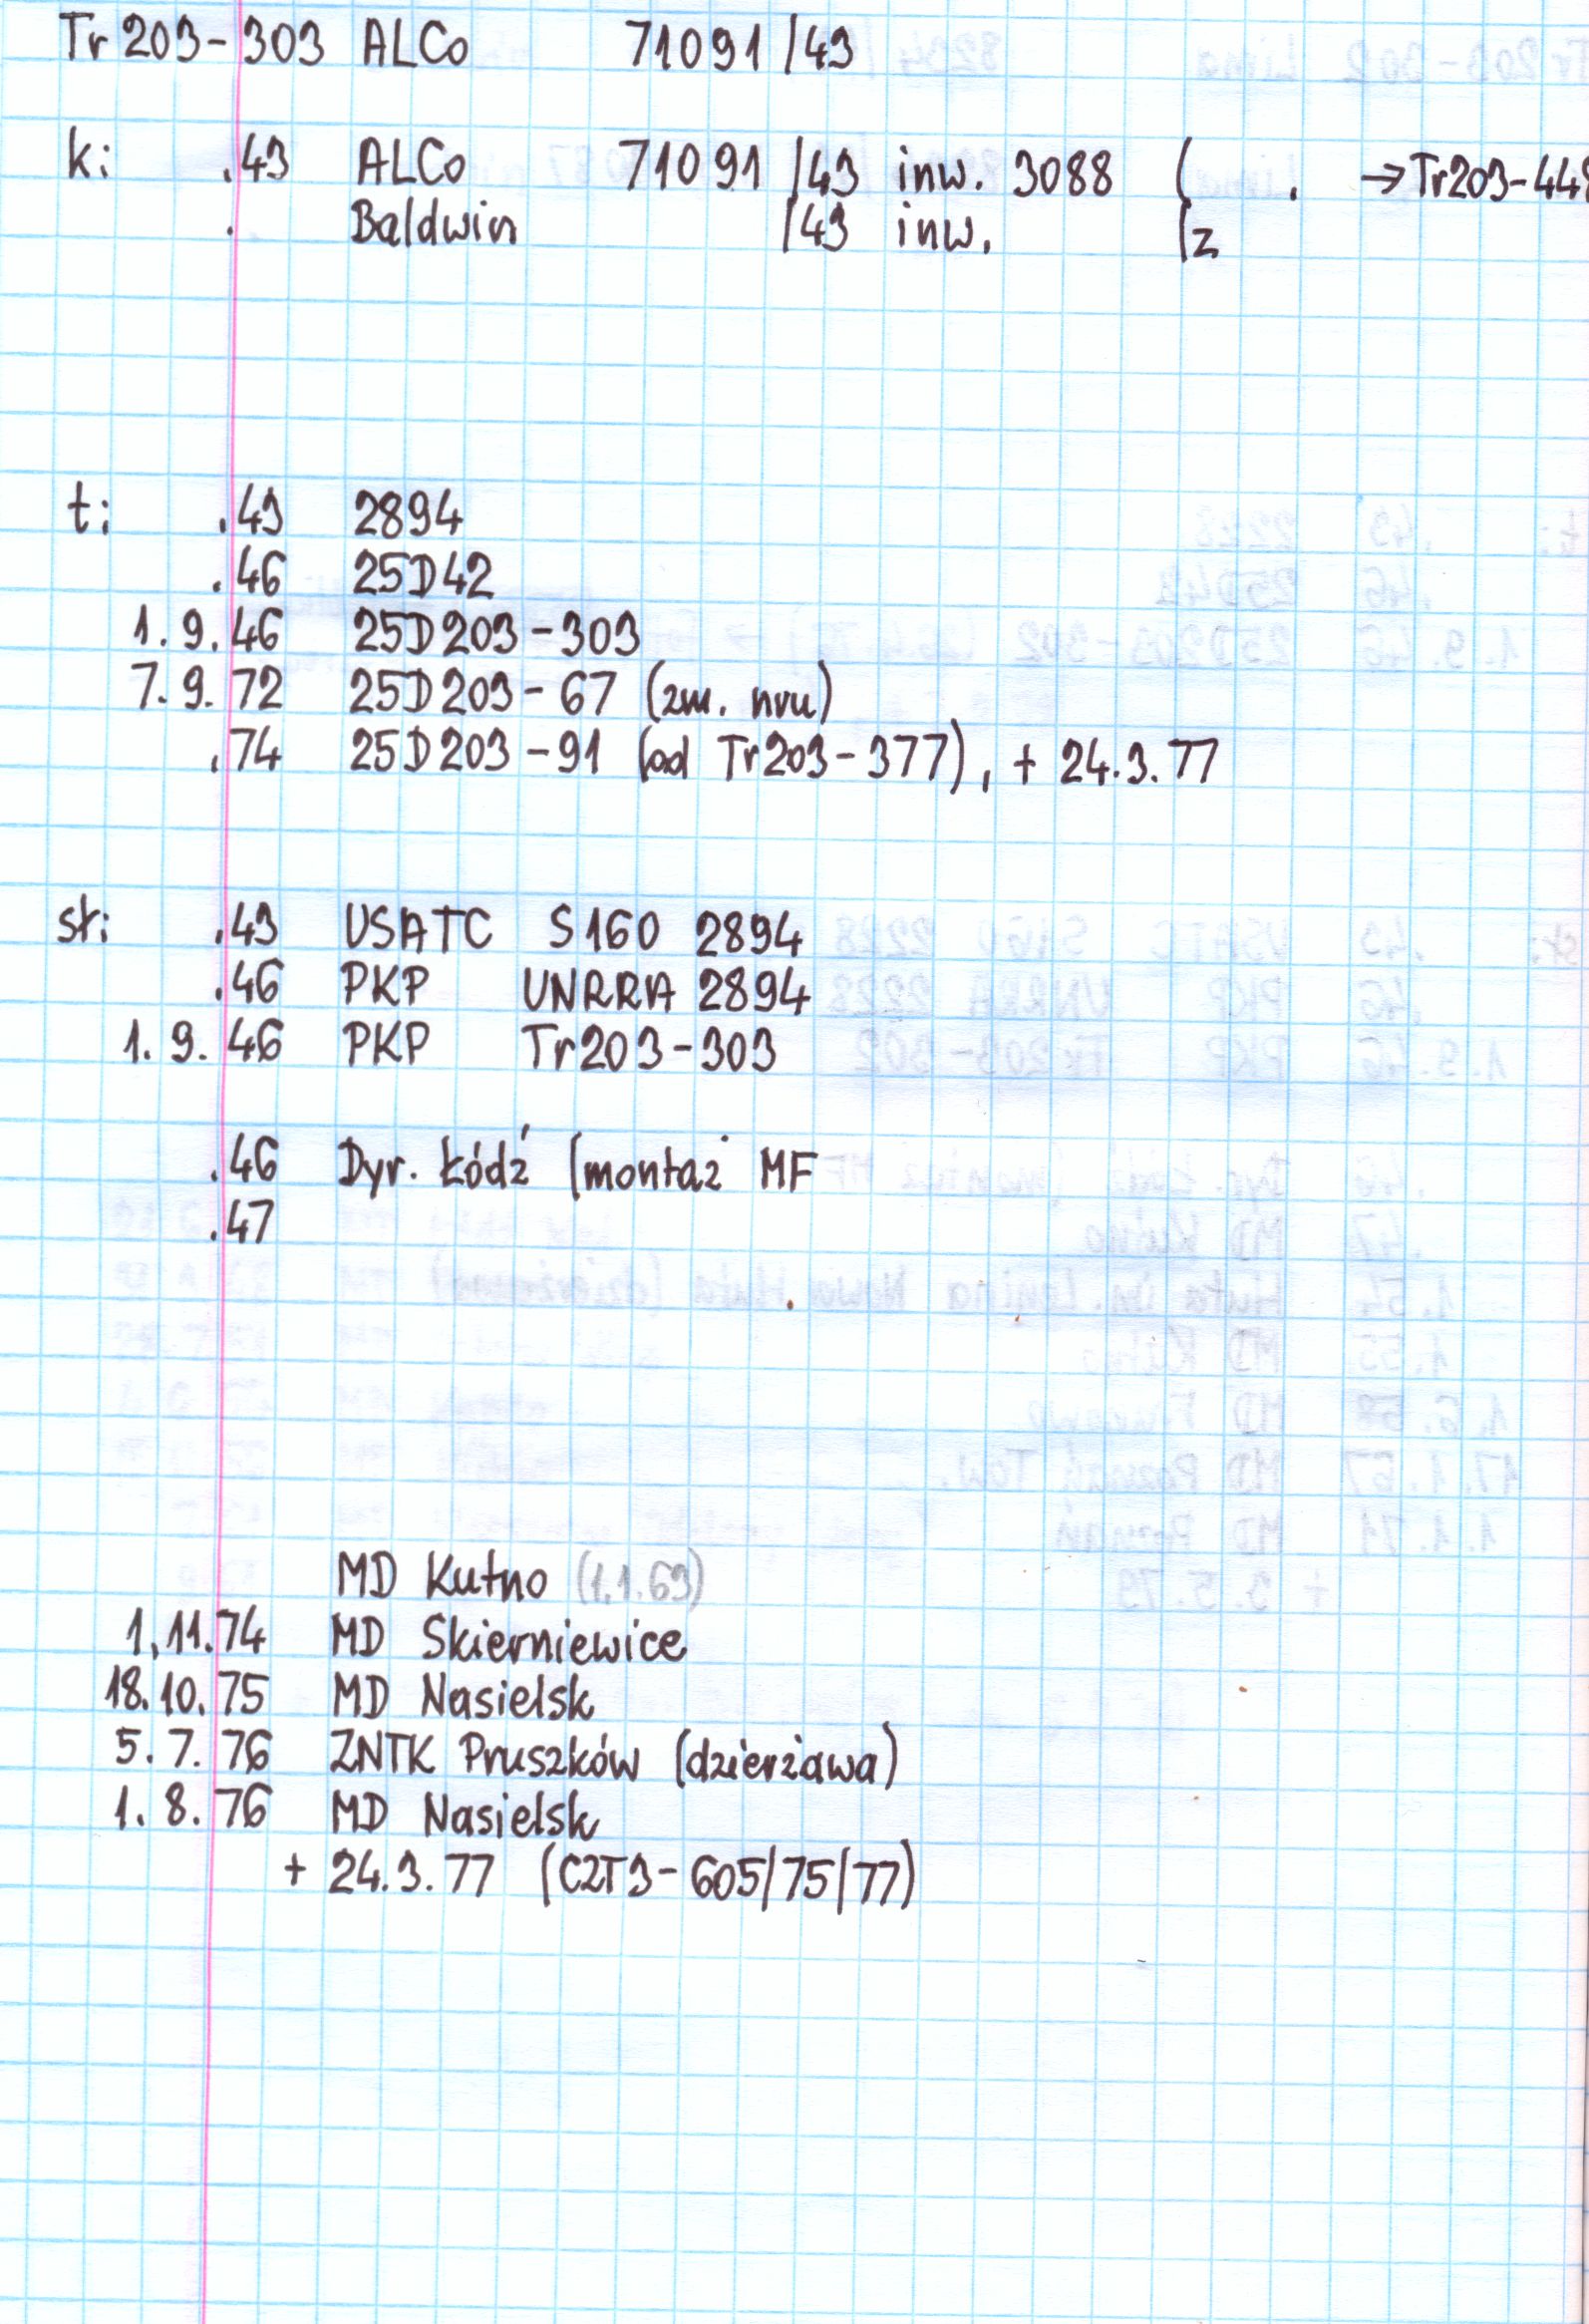 Tr203-303 ALCo 71091/43
k: .43 ALCo 71091/43 inw. 3088 ( . →Tr203-448
. Baldwin /43 inw. (z
t: .43 2894
.46 25D42
1.9.46 25D203-303
7.9.72 25D203-67 (zm. nru)
.74 25D203-91 (od Tr203-377), + 24.3.77
sł: .43 USATC S160 2894
.46 PKP UNRRA 2894
1.9.46 PKP Tr203-303
.46 Dyr. Łódź (montaż MF
.47
MD Kutno (1.1.69)
1.11.74 MD Skierniewice
18.10.75 MD Nasielsk
5.7.76 ZNTK Pruszków (dzierżawa)
1.8.76 MD Nasielsk
+ 24.3.77 (CZT3-605/75/77)